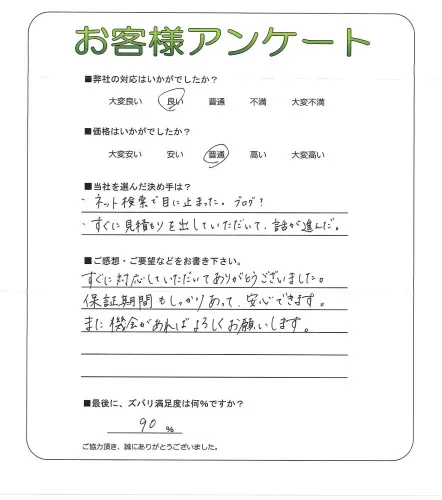 お客様アンケート
■弊社の対応はいかがでしたか？
大変良い 良い 普通 不満 大変不満
■価格はいかがでしたか？
大変安い 安い 普通 高い 大変高い
■当社を選んだ決め手は？
・ネット検索で目に止まった。ブログ！
・すぐに見積もりを出していただいて、話が進んだ。
■ご感想・ご要望などをお書き下さい。
すぐに対応していただいてありがとうございました。
保証期間もしっかりあって、安心できます。
また機会があればよろしくお願いします。
■最後に、ズバリ満足度は何％ですか？
90 ％
ご協力頂き、誠にありがとうございました。